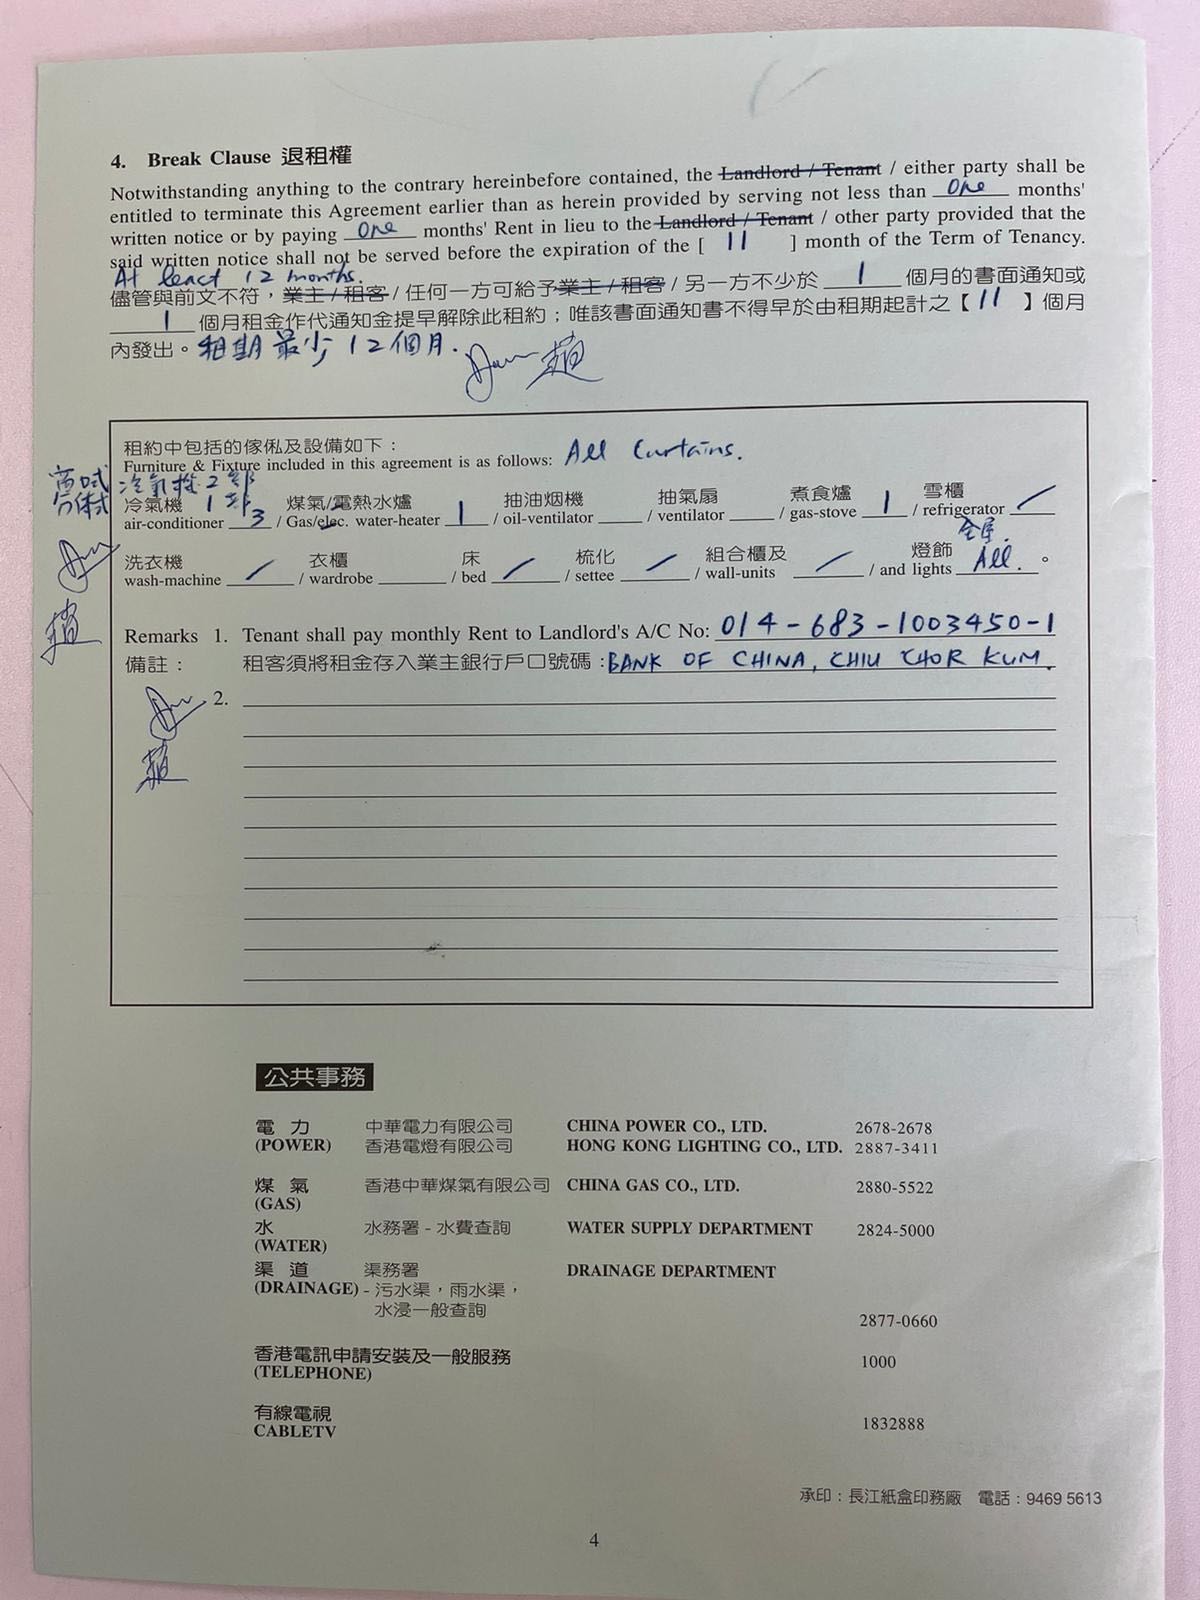 4. Break Clause 退租權
Notwithstanding anything to the contrary hereinbefore contained, the Landlord / Tenant / either party shall be
entitled to terminate this Agreement earlier than as herein provided by serving not less than one months'
written notice or by paying one months' Rent in lieu to the Landlord / Tenant / other party provided that the
said written notice shall not be served before the expiration of the [ 11 ] month of the Term of Tenancy.
At least 12 months.
儘管與前文不符，業主/租客/任何一方可給予業主/租客/另一方不少於 1 個月的書面通知或
1 個月租金作代通知金提早解除此租約；唯該書面通知書不得早於由租期起計之【11】個月
內發出。租期最少12個月.
租約中包括的傢俬及設備如下：
Furniture & Fixture included in this agreement is as follows: All Curtains.
窗口式 冷氣機2部
分体式 1部
冷氣機 煤氣/電熱水爐 抽油烟機 抽氣扇 煮食爐 雪櫃
air-conditioner 3 / Gas/elec. water-heater 1 / oil-ventilator / ventilator / gas-stove 1 / refrigerator /
全屋.
洗衣機 衣櫃 床 梳化 組合櫃及 燈飾
wash-machine / / wardrobe / bed / / settee / / wall-units / / and lights All. 。
Remarks 1. Tenant shall pay monthly Rent to Landlord's A/C No: 014-683-1003450-1
備註： 租客須將租金存入業主銀行戶口號碼：BANK OF CHINA, CHIU CHOR KUM.
2.
公共事務
電力 中華電力有限公司 CHINA POWER CO., LTD. 2678-2678
(POWER) 香港電燈有限公司 HONG KONG LIGHTING CO., LTD. 2887-3411
煤氣 香港中華煤氣有限公司 CHINA GAS CO., LTD. 2880-5522
(GAS)
水 水務署 - 水費查詢 WATER SUPPLY DEPARTMENT 2824-5000
(WATER)
渠道 渠務署 DRAINAGE DEPARTMENT
(DRAINAGE) - 污水渠，雨水渠，
水浸一般查詢
2877-0660
香港電訊申請安裝及一般服務 1000
(TELEPHONE)
有線電視
CABLETV 1832888
承印：長江紙盒印務廠 電話：9469 5613
4